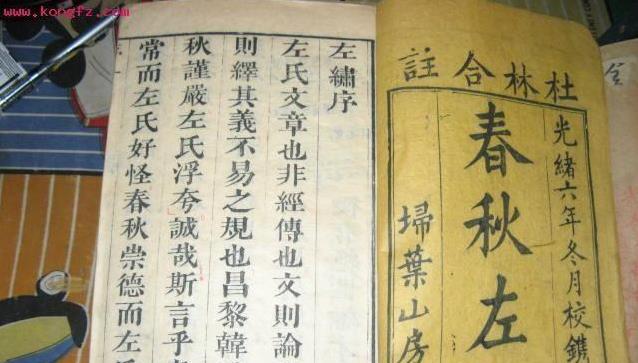 www.kongfz.com
杜林合註
光緒六年冬月校鐫
春秋左
埽葉山房
左繡序
左氏文章也非經傳也文則論
則繹其義不易之規也昌黎韓
秋謹嚴左氏浮夸誠哉斯言乎
常而左氏好怪春秋崇德而左氏